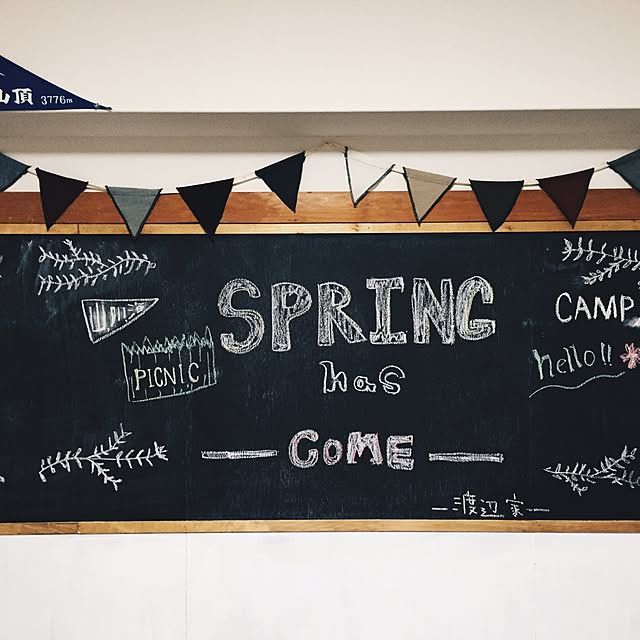 山頂 3776m
SPRING
has
COME
PICNIC
CAMP
hello!!
渡辺家